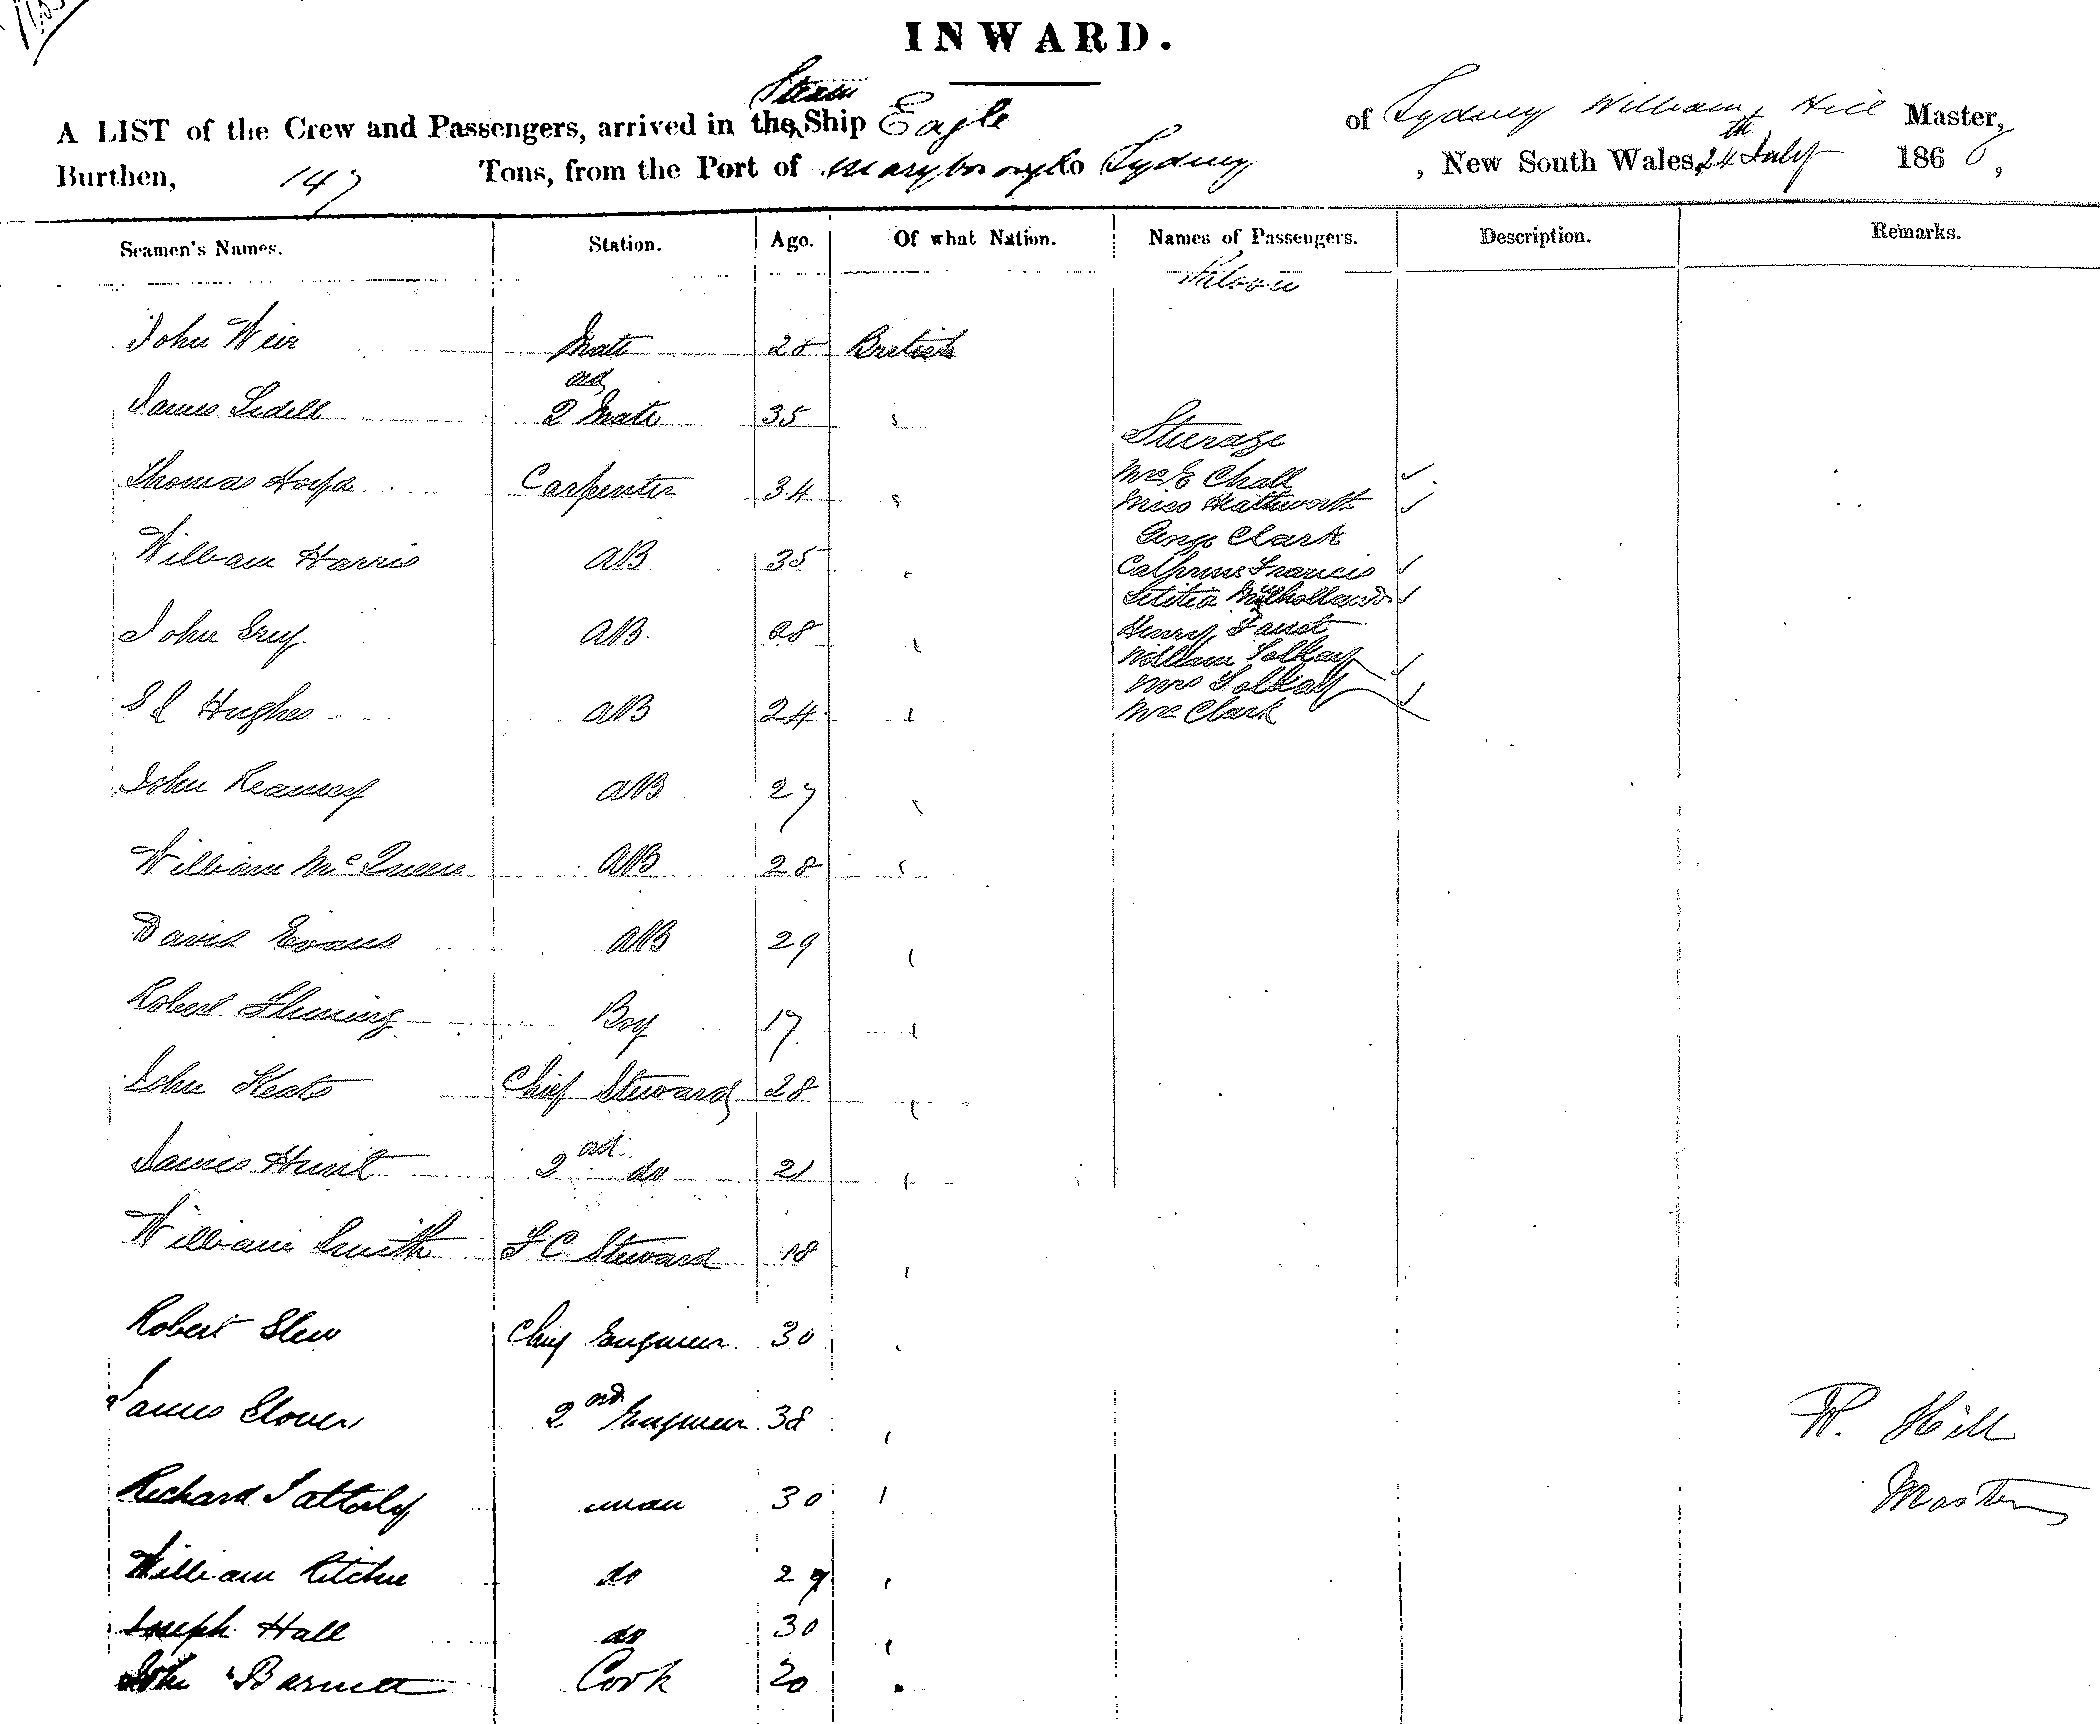 INWARD.
Steam
A LIST of the Crew and Passengers, arrived in the Ship Eagle of Sydney William Hill Master,
Burthen, 147 Tons, from the Port of Maryborough to Sydney, New South Wales, 24th July 186
Seamen's Names. Station. Age. Of what Nation. Names of Passengers. Description. Remarks.
Saloon
John Weir Mate 28 British
James Sidell 2nd Mate 35 "
Steerage
Thomas Carpenter 34 "
Mrs E Chall ✓
Miss Heathworth ✓
William Harris AB 35 "
Clark
Francis ✓
Letitia Mulholland ✓
John Grey AB 28 "
Henry
William Tolkay ✓
Mrs Tolkay ✓
S Hughes AB 24 "
Mrs Clark
John Kearney AB 27 "
William McQueen AB 28 "
David Evans AB 29 "
Robert Fleming Boy 17 "
John Keats Chief Steward 28 "
James Hunt 2nd do 21 "
William Smith F C Steward 18 "
Robert Chief Engineer 30 "
James Glover 2nd Engineer 38 "
W. Hill
Richard Satterly man 30 "
Master
William Ritchie do 29 "
Joseph Hall do 30 "
John Barnett Cook 20 "